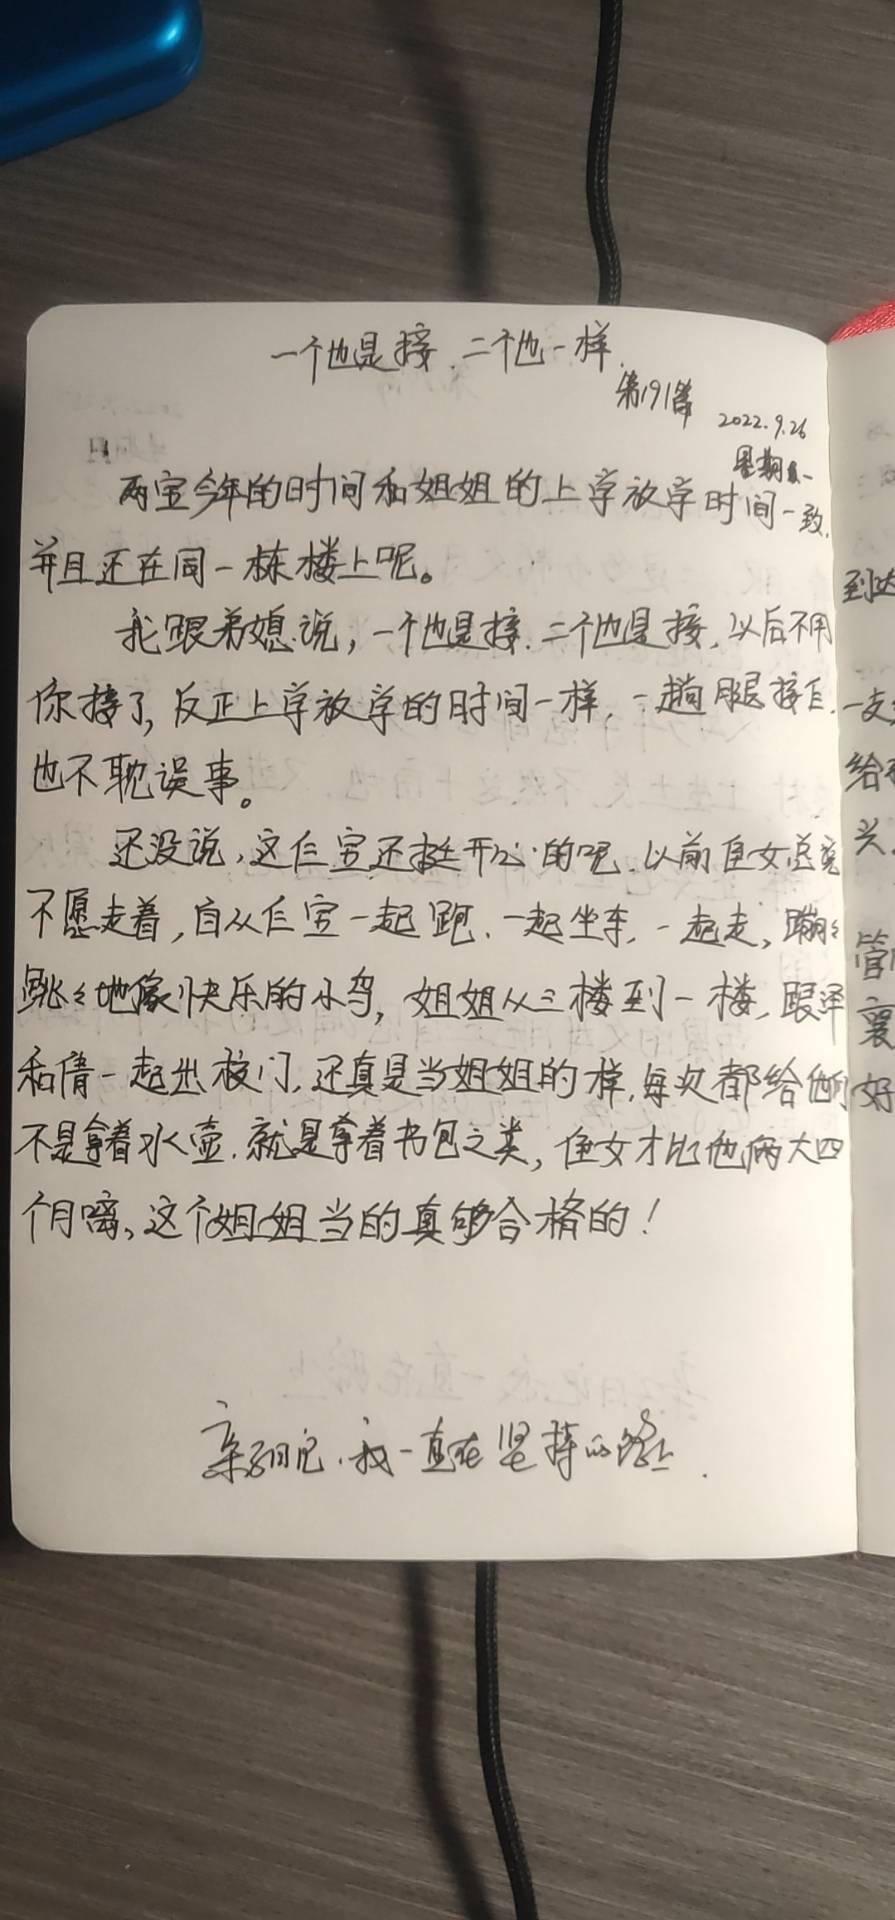 一个也是接.二个也一样.
第191篇
2022.9.26
星期一
两宝今年的时间和姐姐的上学放学时间一致,
并且还在同一栋楼上呢。
我跟弟媳说,一个也是接.二个也是接,以后不用
你接了,反正上学放学的时间一样,一趟腿接
也不耽误事。
还没说,这仨宝还挺开心的呢.以前侄女总
不愿走着,自从仨宝一起跑.一起坐车,一起走,蹦々
跳々地像快乐的小鸟,姐姐从三楼到一楼,跟泽
和倩一起出校门,还真是当姐姐的样,每次都给他们
不是拿着水壶.就是拿着书包之类,侄女才比他俩大四
个月嘀,这个姐姐当的真够合格的!
亲子日记.我一直在坚持的路上.
到达
一支
给
兴,
管
襄
好